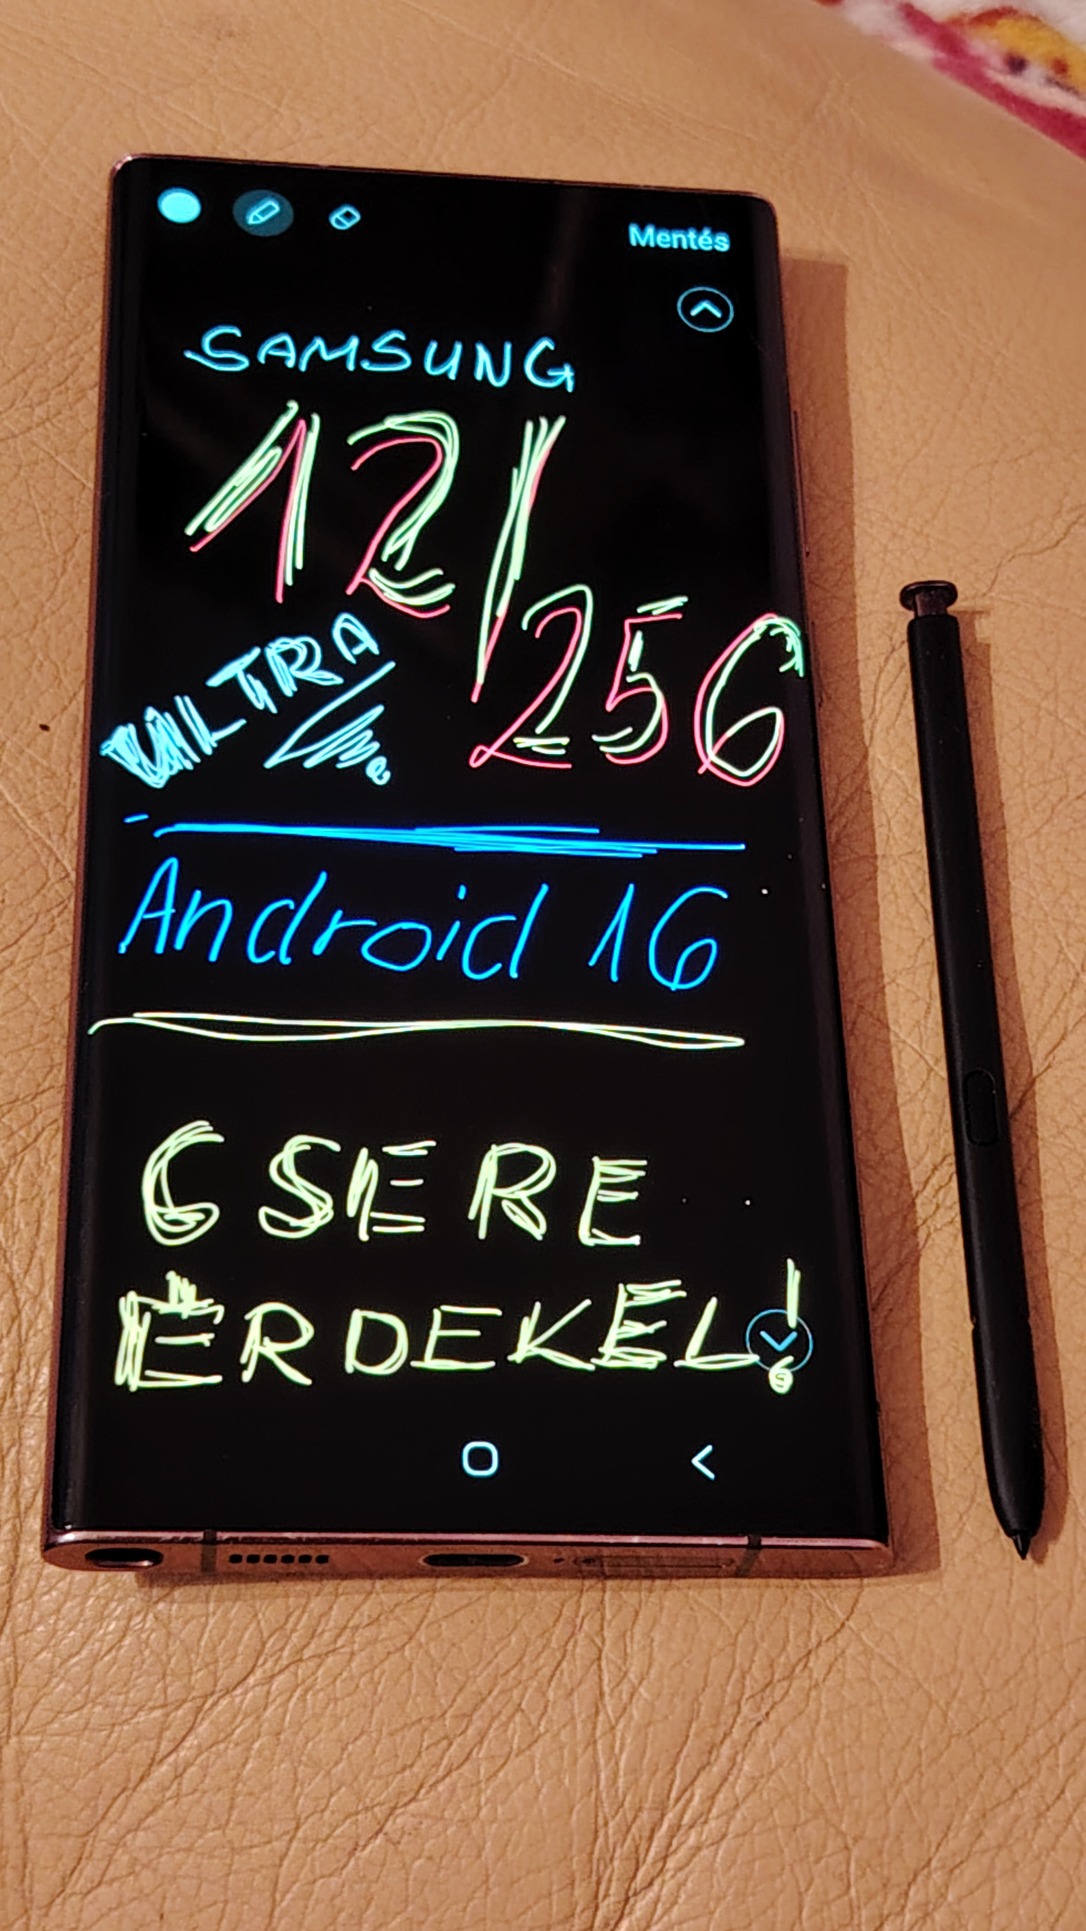 Mentés
SAMSUNG
12/256
ULTRA
Android 16
CSERE
ÉRDEKEL!